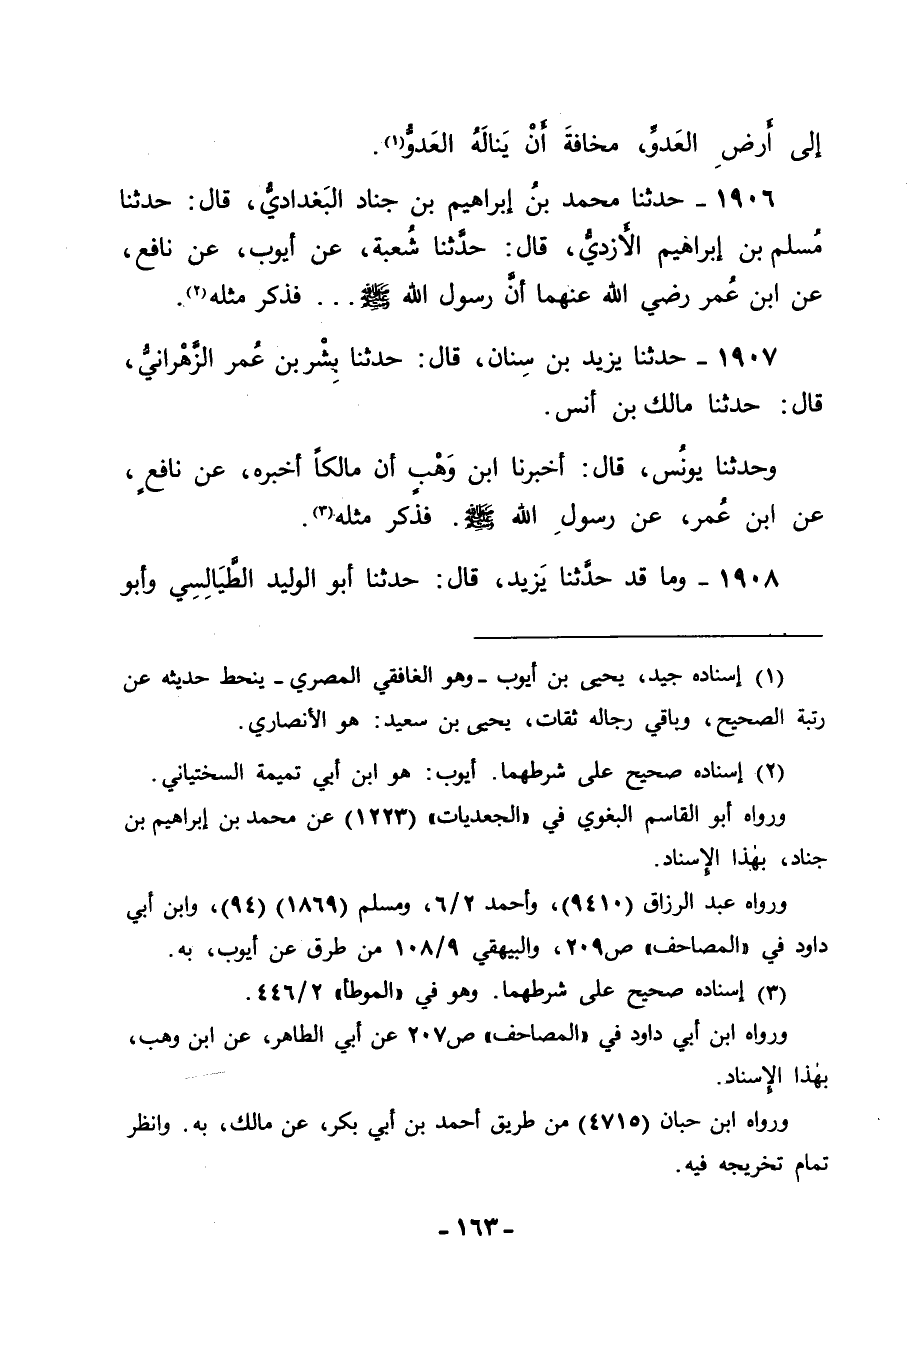 إلى أَرضِ العَدوِّ، مخافةَ أَنْ يَنالَهُ العَدوُّ(١).
١٩٠٦ ـ حدثنا محمد بنُ إبراهيم بن جناد البَغداديُّ، قال: حدثنا
مُسلم بن إبراهيم الأَزديُّ، قال: حدَّثنا شُعبة، عن أيوب، عن نافع،
عن ابن عُمر رضي الله عنهما أنَّ رسول الله ﷺ... فذكر مثله(٢).
١٩٠٧ ـ حدثنا يزيد بن سِنان، قال: حدثنا بِشْر بن عُمر الزَّهْرانيُّ،
قال: حدثنا مالك بن أنس.
وحدثنا يونُس، قال: أخبرنا ابن وَهْبٍ أن مالكاً أخبره، عن نافعٍ،
عن ابن عُمر، عن رسولِ الله ﷺ. فذكر مثله(٣).
١٩٠٨ ـ وما قد حدَّثنا يَزيد، قال: حدثنا أبو الوليد الطَّيَالِسِي وأبو
(١) إسناده جيد، يحيى بن أيوب ـ وهو الغافقي المصري ـ ينحط حديثه عن
رتبة الصحيح، وباقي رجاله ثقات، يحيى بن سعيد: هو الأنصاري.
(٢) إسناده صحيح على شرطهما. أيوب: هو ابن أبي تميمة السختياني.
ورواه أبو القاسم البغوي في «الجعديات» (١٢٢٣) عن محمد بن إبراهيم بن
جناد، بهٰذا الإِسناد.
ورواه عبد الرزاق (٩٤١٠)، وأحمد ٦/٢، ومسلم (١٨٦٩) (٩٤)، وابن أبي
داود في «المصاحف» ص٢٠٩، والبيهقي ١٠٨/٩ من طرق عن أيوب، به.
(٣) إسناده صحيح على شرطهما. وهو في «الموطأ» ٤٤٦/٢.
ورواه ابن أبي داود في «المصاحف» ص٢٠٧ عن أبي الطاهر، عن ابن وهب،
بهٰذا الإِسناد.
ورواه ابن حبان (٤٧١٥) من طريق أحمد بن أبي بكر، عن مالك، به. وانظر
تمام تخريجه فيه.
ـ ١٦٣ ـ